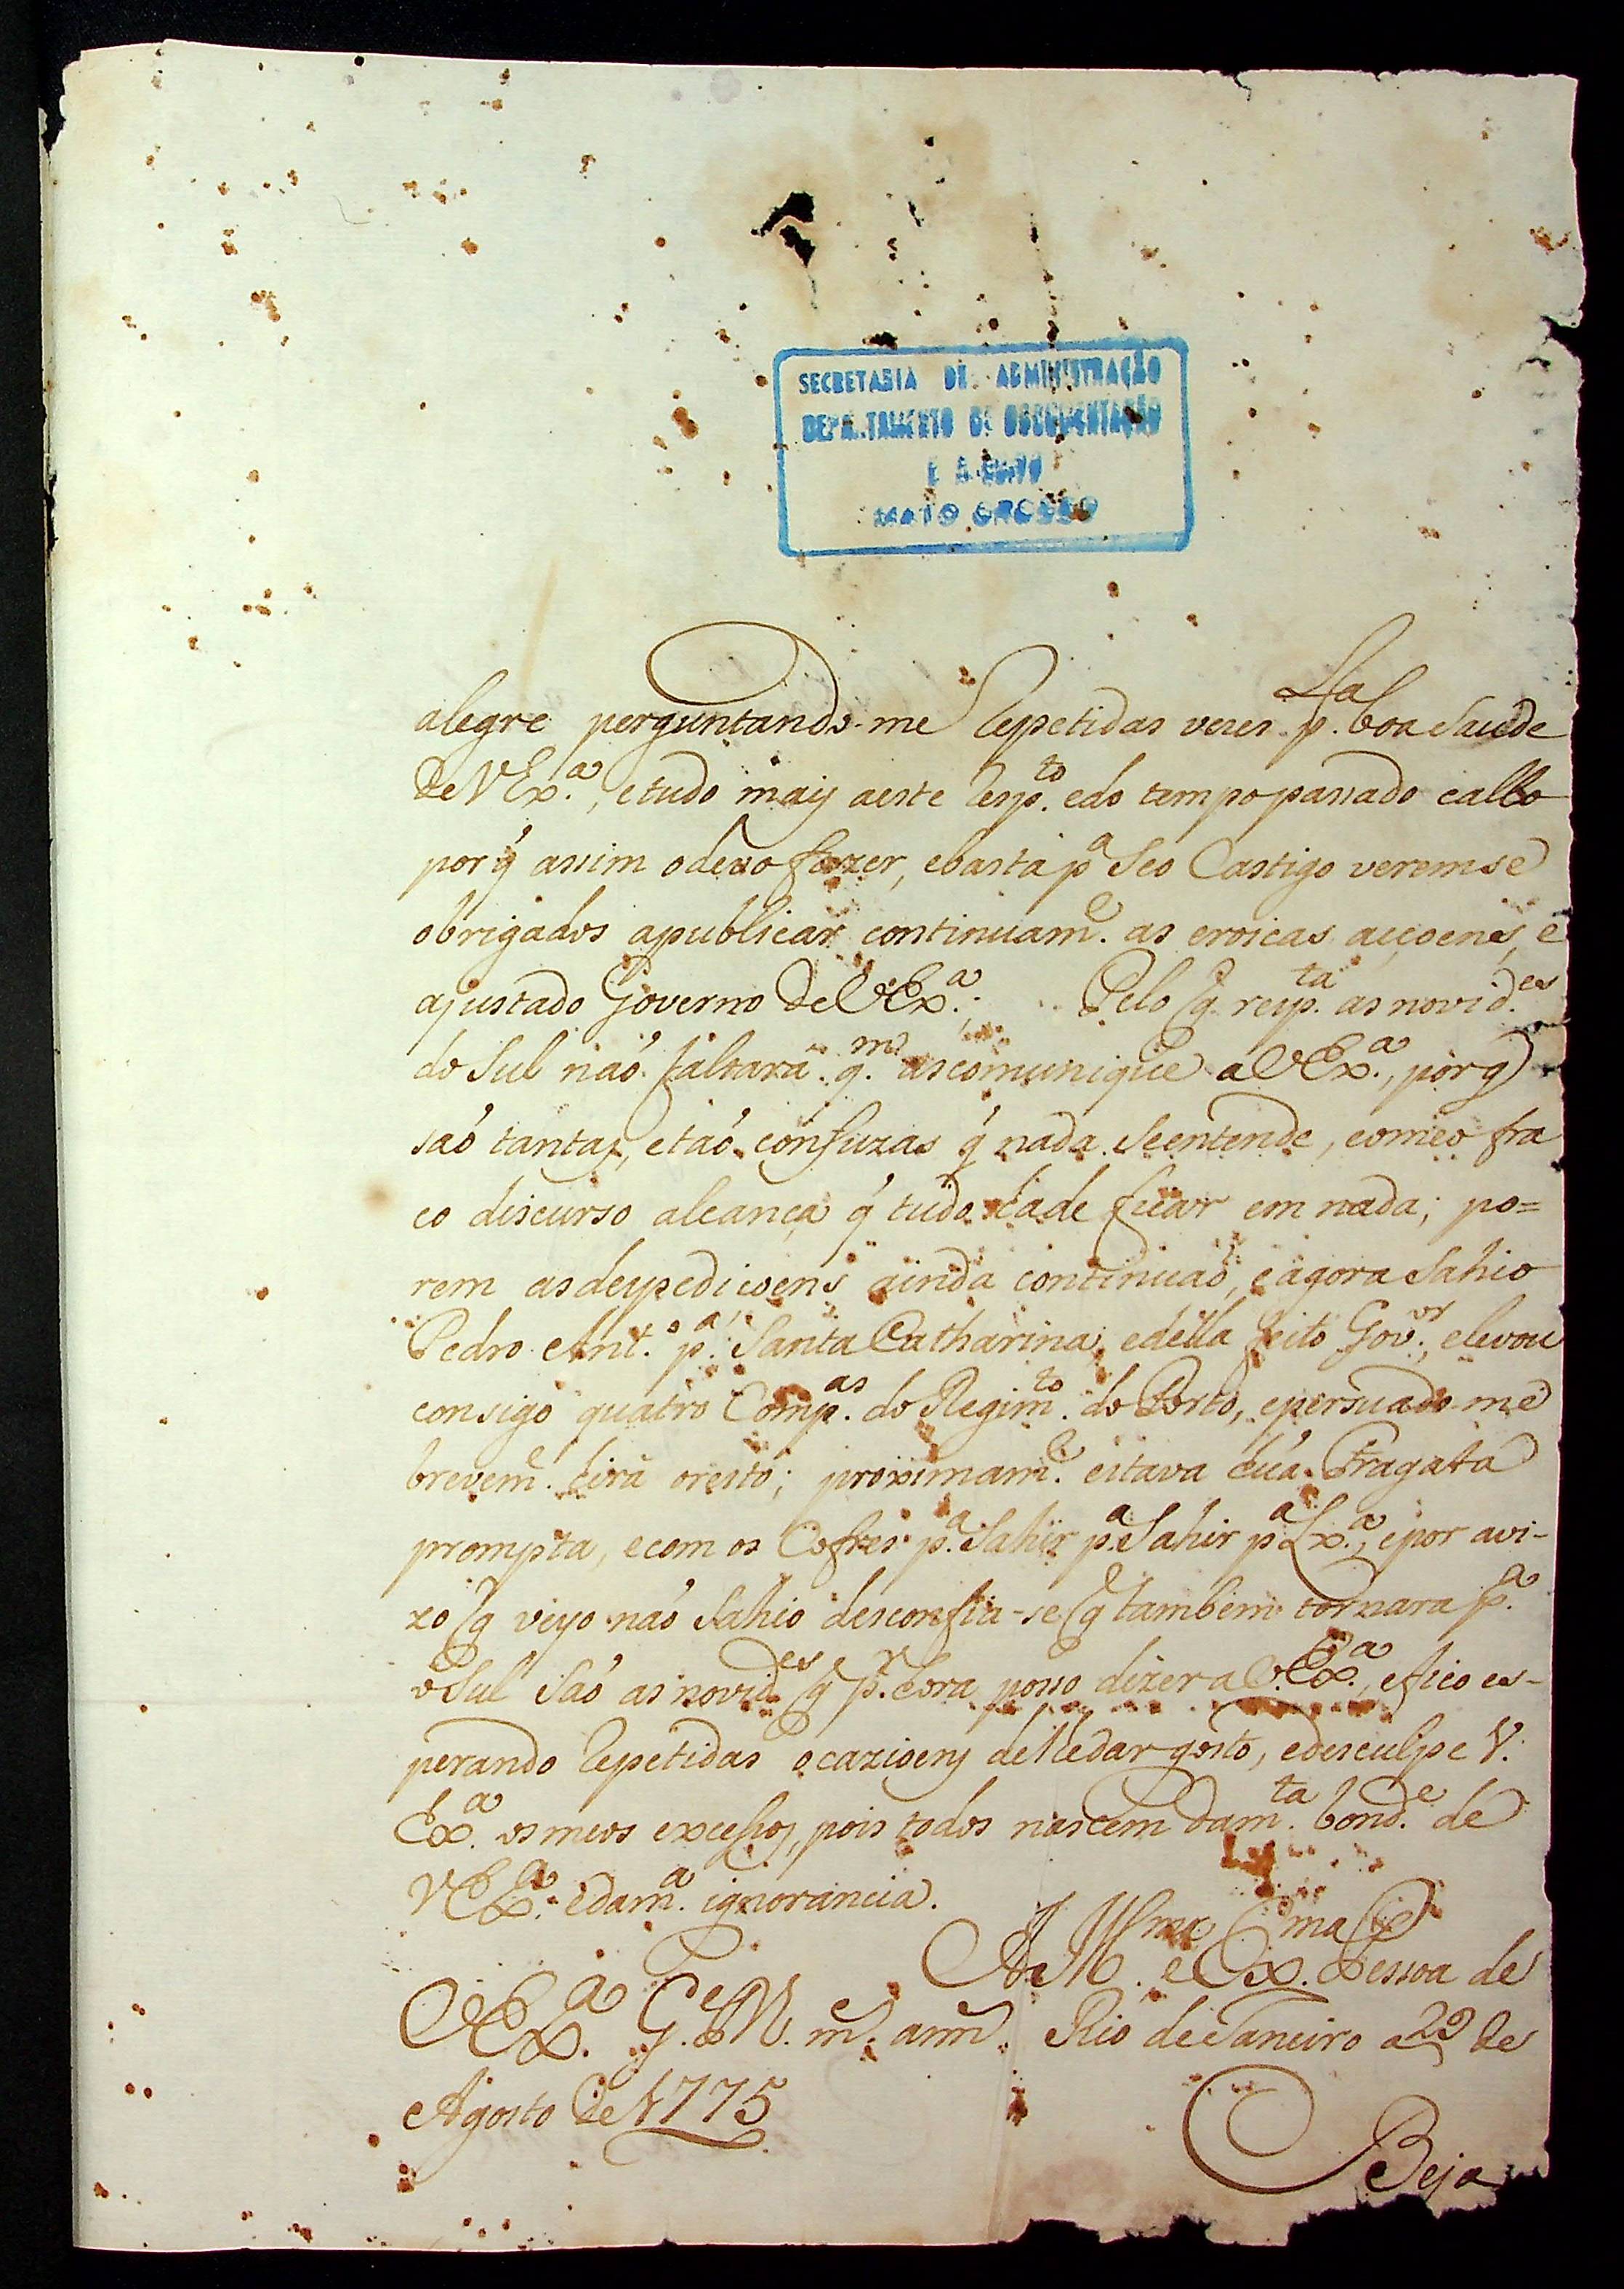 SECRETARIA DE ADMINISTRAÇÃO
DEPARTAMENTO DE DOCUMENTAÇÃO
E ARQUIVO
MATO GROSSO
alegre perguntando-me Repetidas vezes p.lla boa Saude
de VEx.ª, e tudo mais aeste Resp.to edo tempo passado callo
por q̃ assim odevo fazer, ebasta p.ª Seo Castigo veremse
obrigados apublicar continuam.e as eroicas acçoens, e
ajustado Governo de VEx.ª; Pelo q̃ resp.ta as novid.es
do Sul naó faltará q.m as comunique a VEx.ª, por q̃
saó tantas, e taó confuzas q̃ nada Seentende, eomeo fra
co discurso alcança q̃ tudo hade ficar em nada; po=
rem as despedicoens ainda continuaó, e agora Sahio
Pedro Ant.º p.ª Santa Catharina, edella feito Gov.or, elevou
consigo quatro Comp.as do Regim.to do Porto, epersuado-me
brevem.e hirá oresto; proximam.e estava húa Fragata
prompta, ecom os Cofres p.ª Sahir p.ª Sahir p.ª Lx.ª, epor avi-
zo q̃ veyo naó Sahio desconfia-se q̃ tambem tornara p.ª
o Sul Saó as novid.es q̃ p.r hora posso dizer a V.Ex.ª, efico es-
perando Repetidas ocazioens delhedar gosto, edesculpe V.
Ex.ª osmeos excessos, pois todos nascem dam.ta bond.e de
VEx.ª edam.ª ignorancia.
A Ill.ma e Ex.ma Pessoa de
VEx.ª G.e D.s m.s ann.s Rio de Janeiro a 29 de
Agosto de 1775
Beja